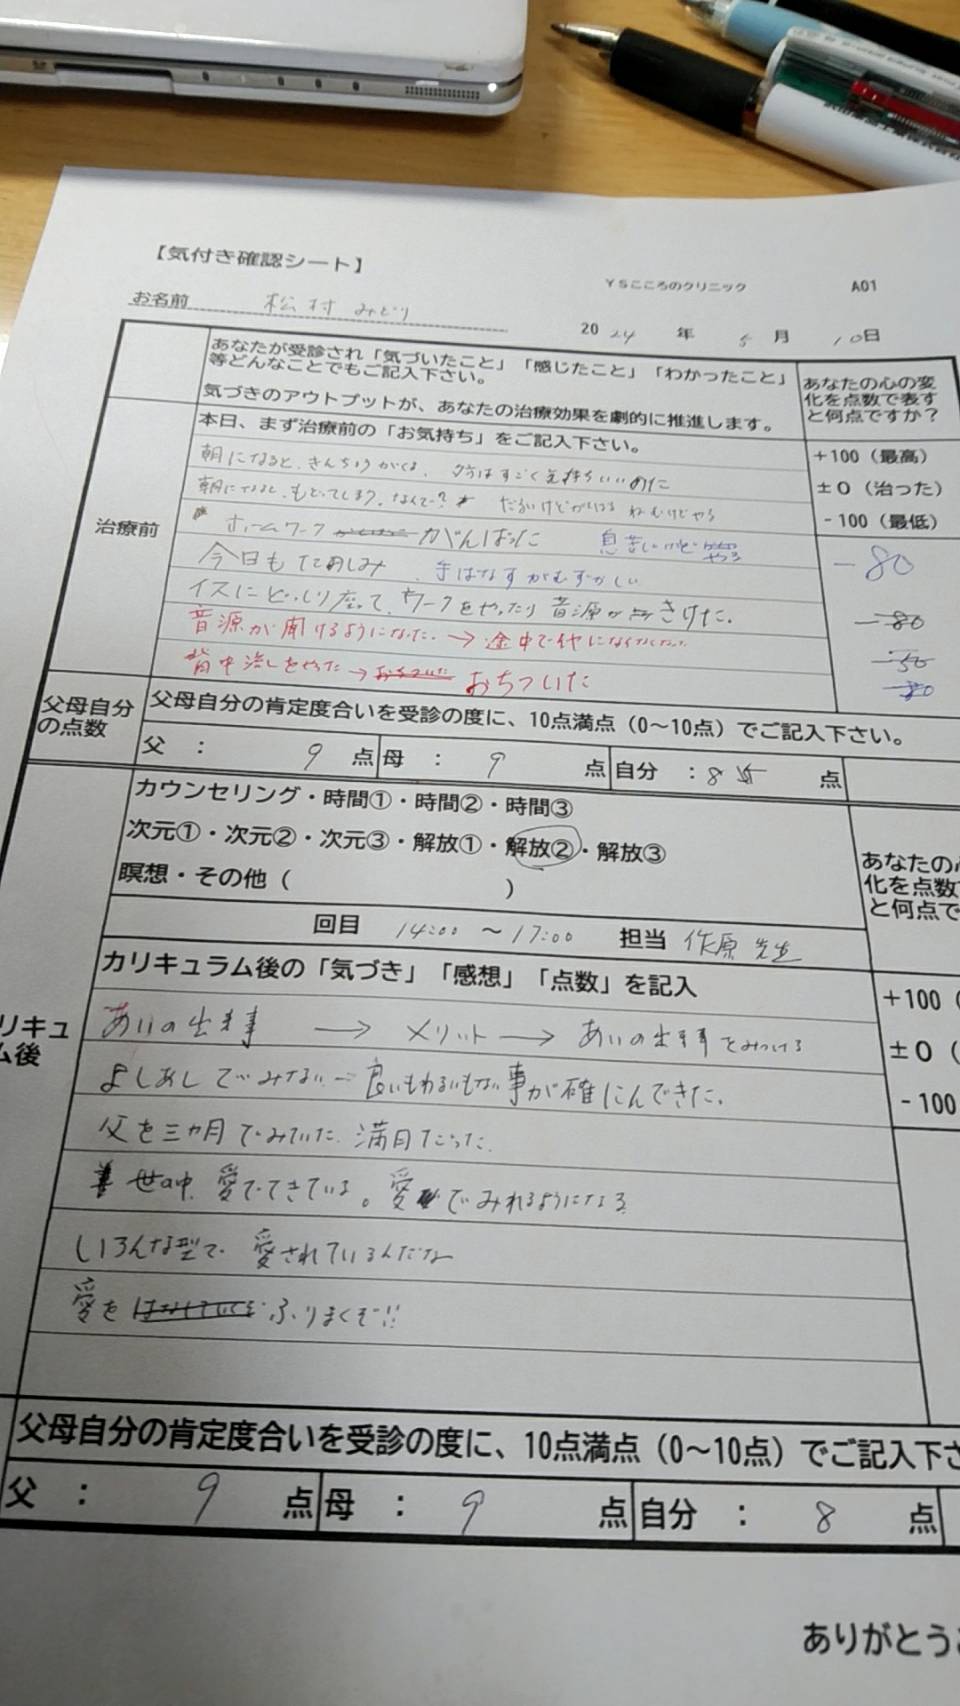 【気付き確認シート】
YSこころのクリニック A01
お名前 松村 みどり
2024年 5月 10日
あなたが受診され「気づいたこと」「感じたこと」「わかったこと」
等どんなことでもご記入下さい。
気づきのアウトプットが、あなたの治療効果を劇的に推進します。
あなたの心の変
化を点数で表す
と何点ですか？
治療前
本日、まず治療前の「お気持ち」をご記入下さい。
+100（最高）
±0（治った）
-100（最低）
朝になると、きんちょうがくる、夕方はすごく気持ちいいのに
朝になると、もどってしまう。なんで？ だるいけどがんばる ねむけどやる
ホームワーク がんばった 息苦しいけど やろう
-80
今日もたのしみ、手はなすがむずかしい
イスにどっしり座って、ワークをやったり音源が きけた。
-80
音源が聞けるようになった。→途中で
-50
背中流しをやった→おちついた おちついた
-80
父母自分
の点数
父母自分の肯定度合いを受診の度に、10点満点（0～10点）でご記入下さい。
父 ： 9 点 母 ： 9 点 自分 ：8 点
カウンセリング・時間①・時間②・時間③
次元①・次元②・次元③・解放①・解放②・解放③
瞑想・その他（ ）
あなたの心
化を点数
と何点で
回目 14:00 ～17:00 担当 作原 先生
リキュ
ム後
カリキュラム後の「気づき」「感想」「点数」を記入
+100（
±0（
-100
あいの出来事 → メリット → あいの出来事をみつける
よしあしでみない→良いもわるいもない事が確にんできた。
父を三ヵ月でみていた、満月だった。
世の中、愛でできている。愛でみれるようになる
いろんな型で、愛されているんだな
愛を ふりまくぞ!!
父母自分の肯定度合いを受診の度に、10点満点（0～10点）でご記入下さ
父 ： 9 点 母 ： 9 点 自分 ： 8 点
ありがとうご